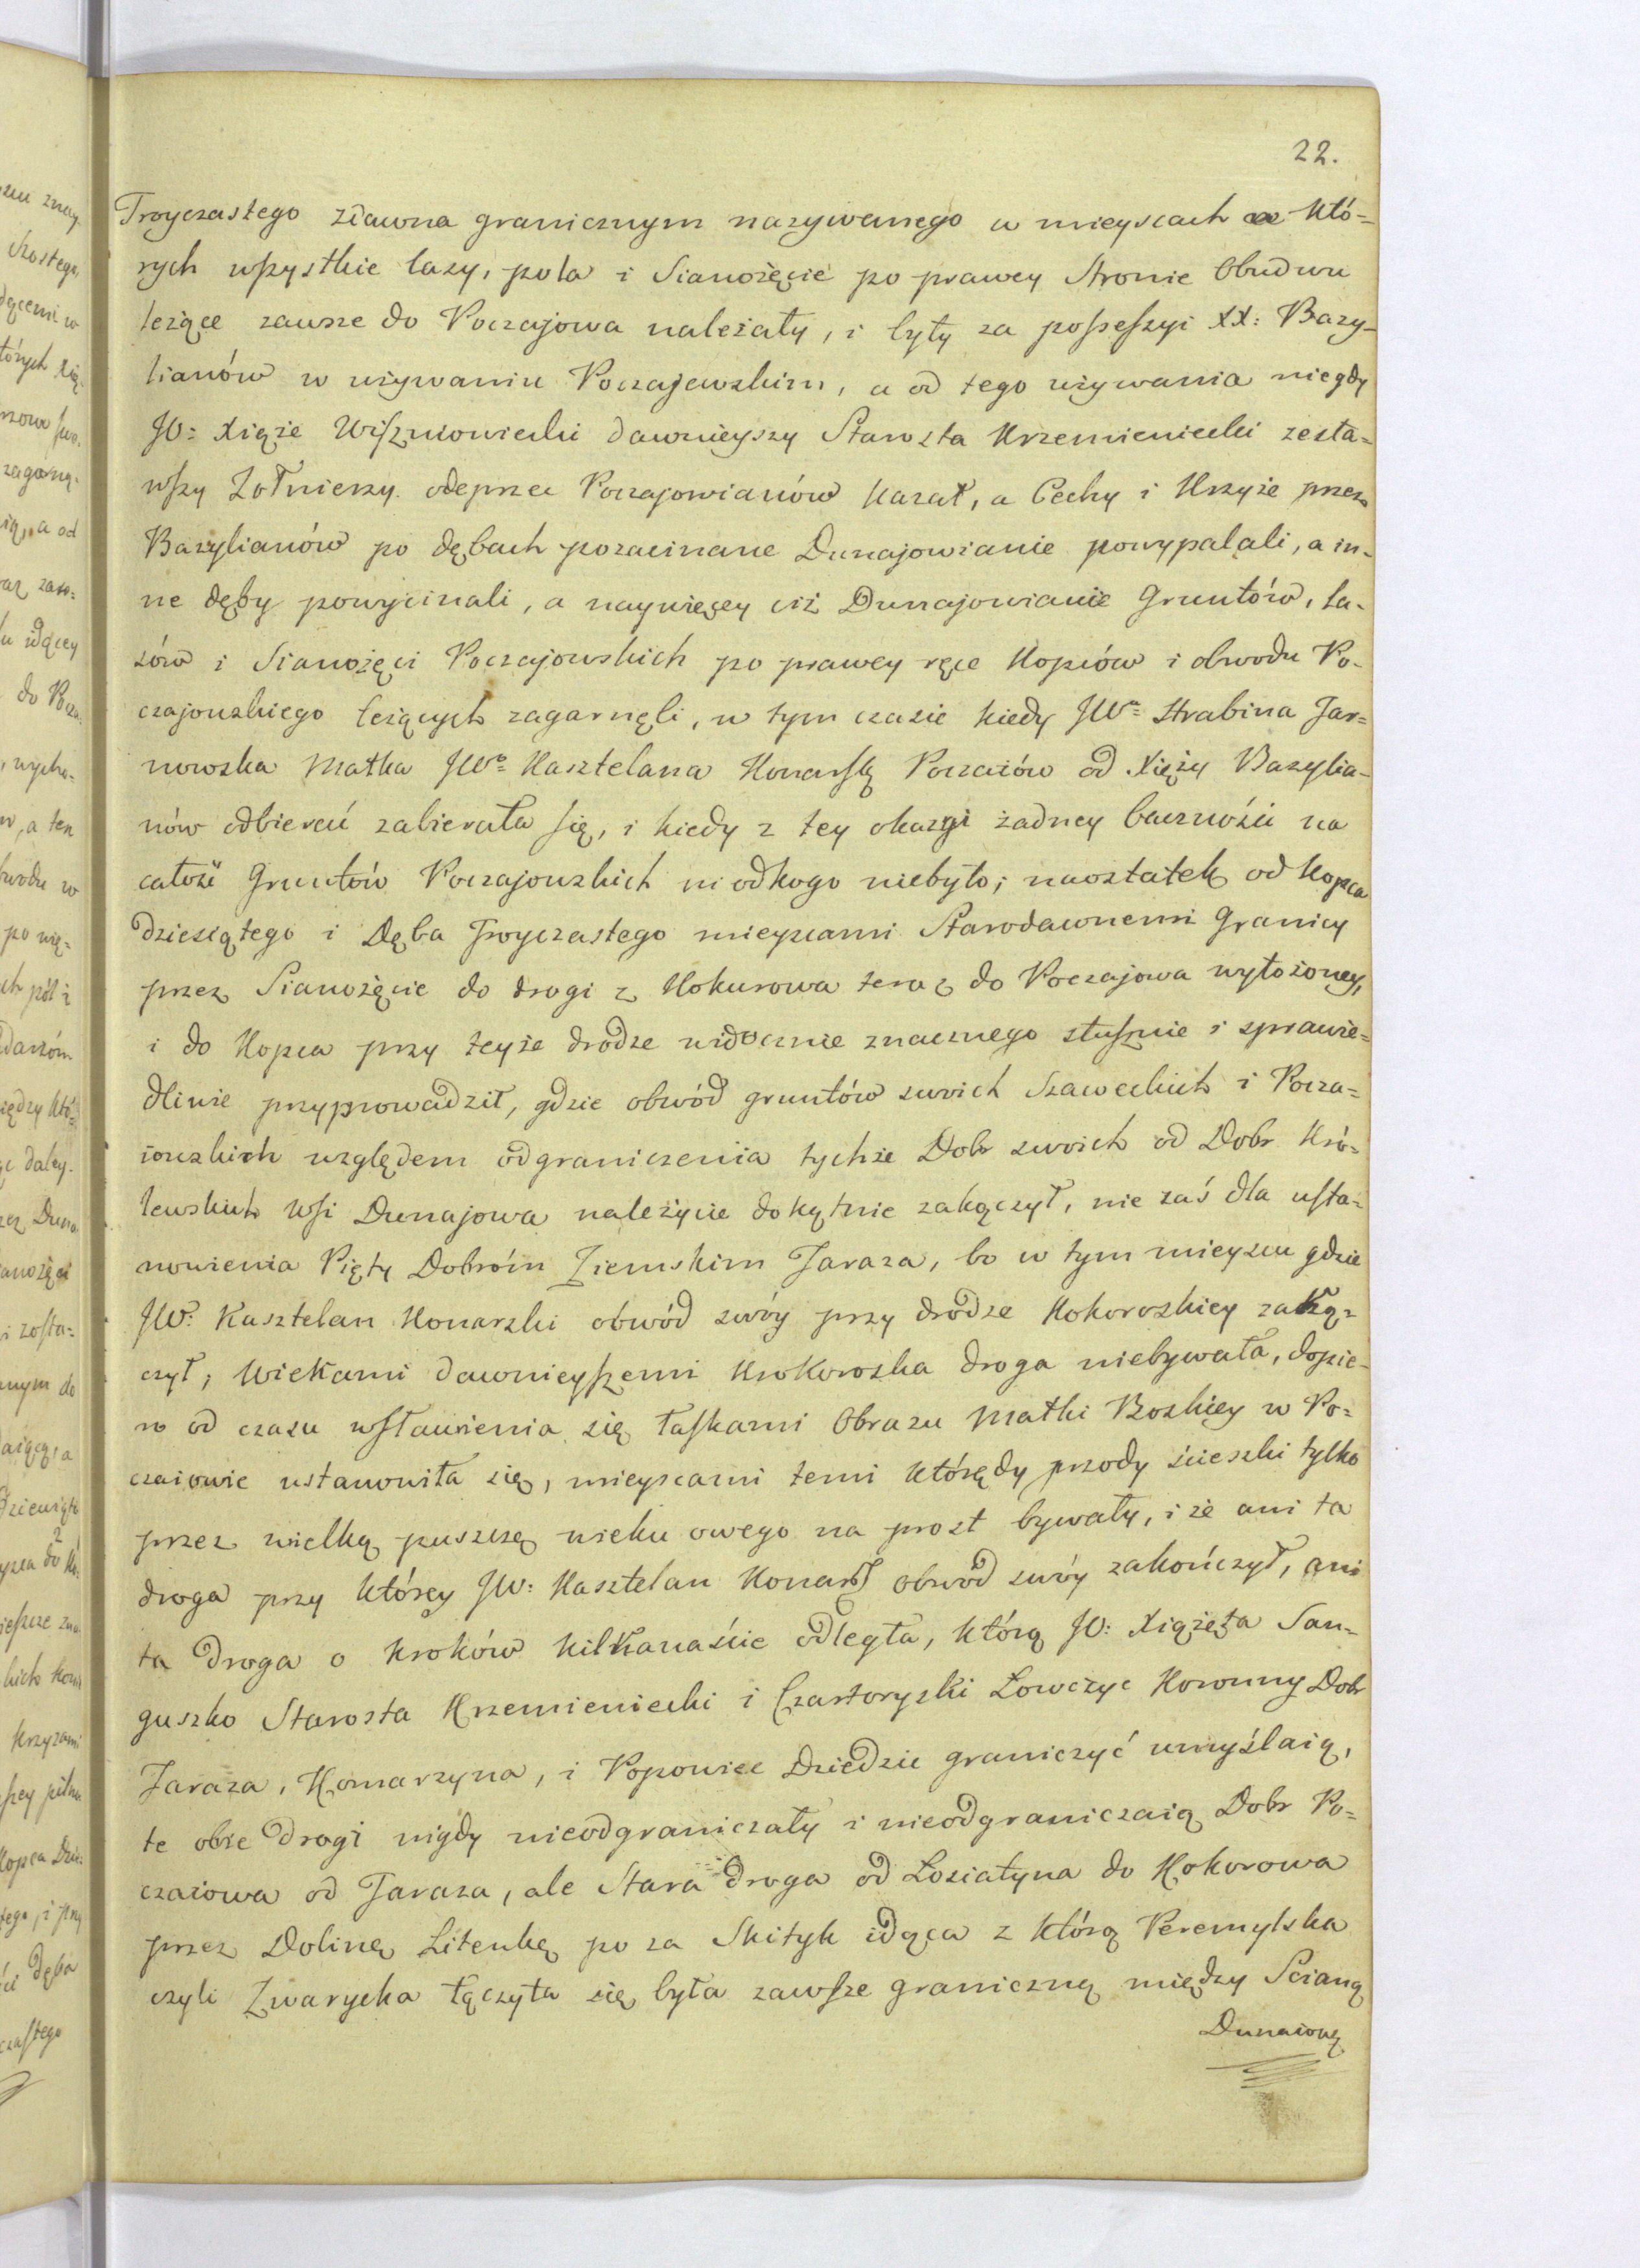 22.
Troyczastego zdawna granicznym nazywanego w mieyscach w Któ-
rych wszystkie lazy, pola i Sianożęcie po prawey Stronie Obudwu
leżące zawsze do Poczajowa należały, i były za possessyi XX: Bazy-
lianów w używaniu Poczajewskim, a od tego używania niegdy
JO: Xiąże Wiszniowiecki dawnieyszy Starosta Krzemieniecki zesła-
wszy Żołnierzy odeprzeć Poczajowianów Kazał, a Cechy i Krzyże przez
Bazylianów po dębach pozacinane Dunajowianie powypalali, a in-
ne dęby powycinali, a naywięcey ciż Dunajowianie Gruntów, la-
zów i Sianożęci Poczajowskich po prawey ręce Kopców i obwodu Po-
czajowskiego leżących zagarnęli, w tym czasie kiedy JWa Hrabina Tar=
nowska Matka JWo Kasztelana Konarsk Poczaiów od Xięży Bazylia-
nów odbierać zabierała się, i kiedy z tey okazyi żadney bacznośći na
całość Gruntów Poczajowskich ni odkogo niebyło; naostatek od Kopca
dziesiątego i Dęba Troyczastego mieyscami Starodawnemi Granicy
przez Sianożęcie do drogi z Kokurowa teraz do Poczajowa wyłożoney,
i do Kopca przy teyże drodze widocznie znacznego słusznie i sprawie=
dliwie przyprowadził, gdzie obwód gruntów swoich Szaweckich i Pocza=
iowskich względem odgraniczenia tychże Dobr swoich od Dobr Kró-
lewskich Wsi Dunajowa należycie dokątnie zakączył, nie zaś dla usta-
nowienia Pięty Dobróm Ziemskim Taraza, bo w tym mieyscu gdzie
JW: Kasztelan Konarski obwód swóy przy drodze Kokoroskiey zaką-
czył; Wiekami dawnieyszemi Krokoroska droga niebywała, dopie-
ro od czasu wsławienia się łaskami Obrazu Matki Boskiey w Po-
czaiowie ustanowiła się, mieyscami temi któṛędy przody ścieszki tylko
przez wielką puszczę wieku owego na prost bywały, i że ani ta
droga przy Którey JW: Kasztelan Konars obwód swóy zakończył, ani
ta droga o kroków kilkanaście odległa, którą JO: Xiążęta San-
guszko Starosta Krzemieniecki i Czartoryski Łowczyc Koronny Dobr
Taraza, Komarzyna, i Popowiec Dziedzic graniczyć umyślaią,
te obie drogi nigdy nieodgraniczały i nieodgraniczaią Dobr Po=
czaiowa od Taraza, ale Stara droga od Łosiatyna do Kokorowa
przez Dolinę Litenkę po za Skityk idąca z Którą Peremylska
czyli Zwarycka łączyła się była zawsze graniczną między Scianą
Dunaiową